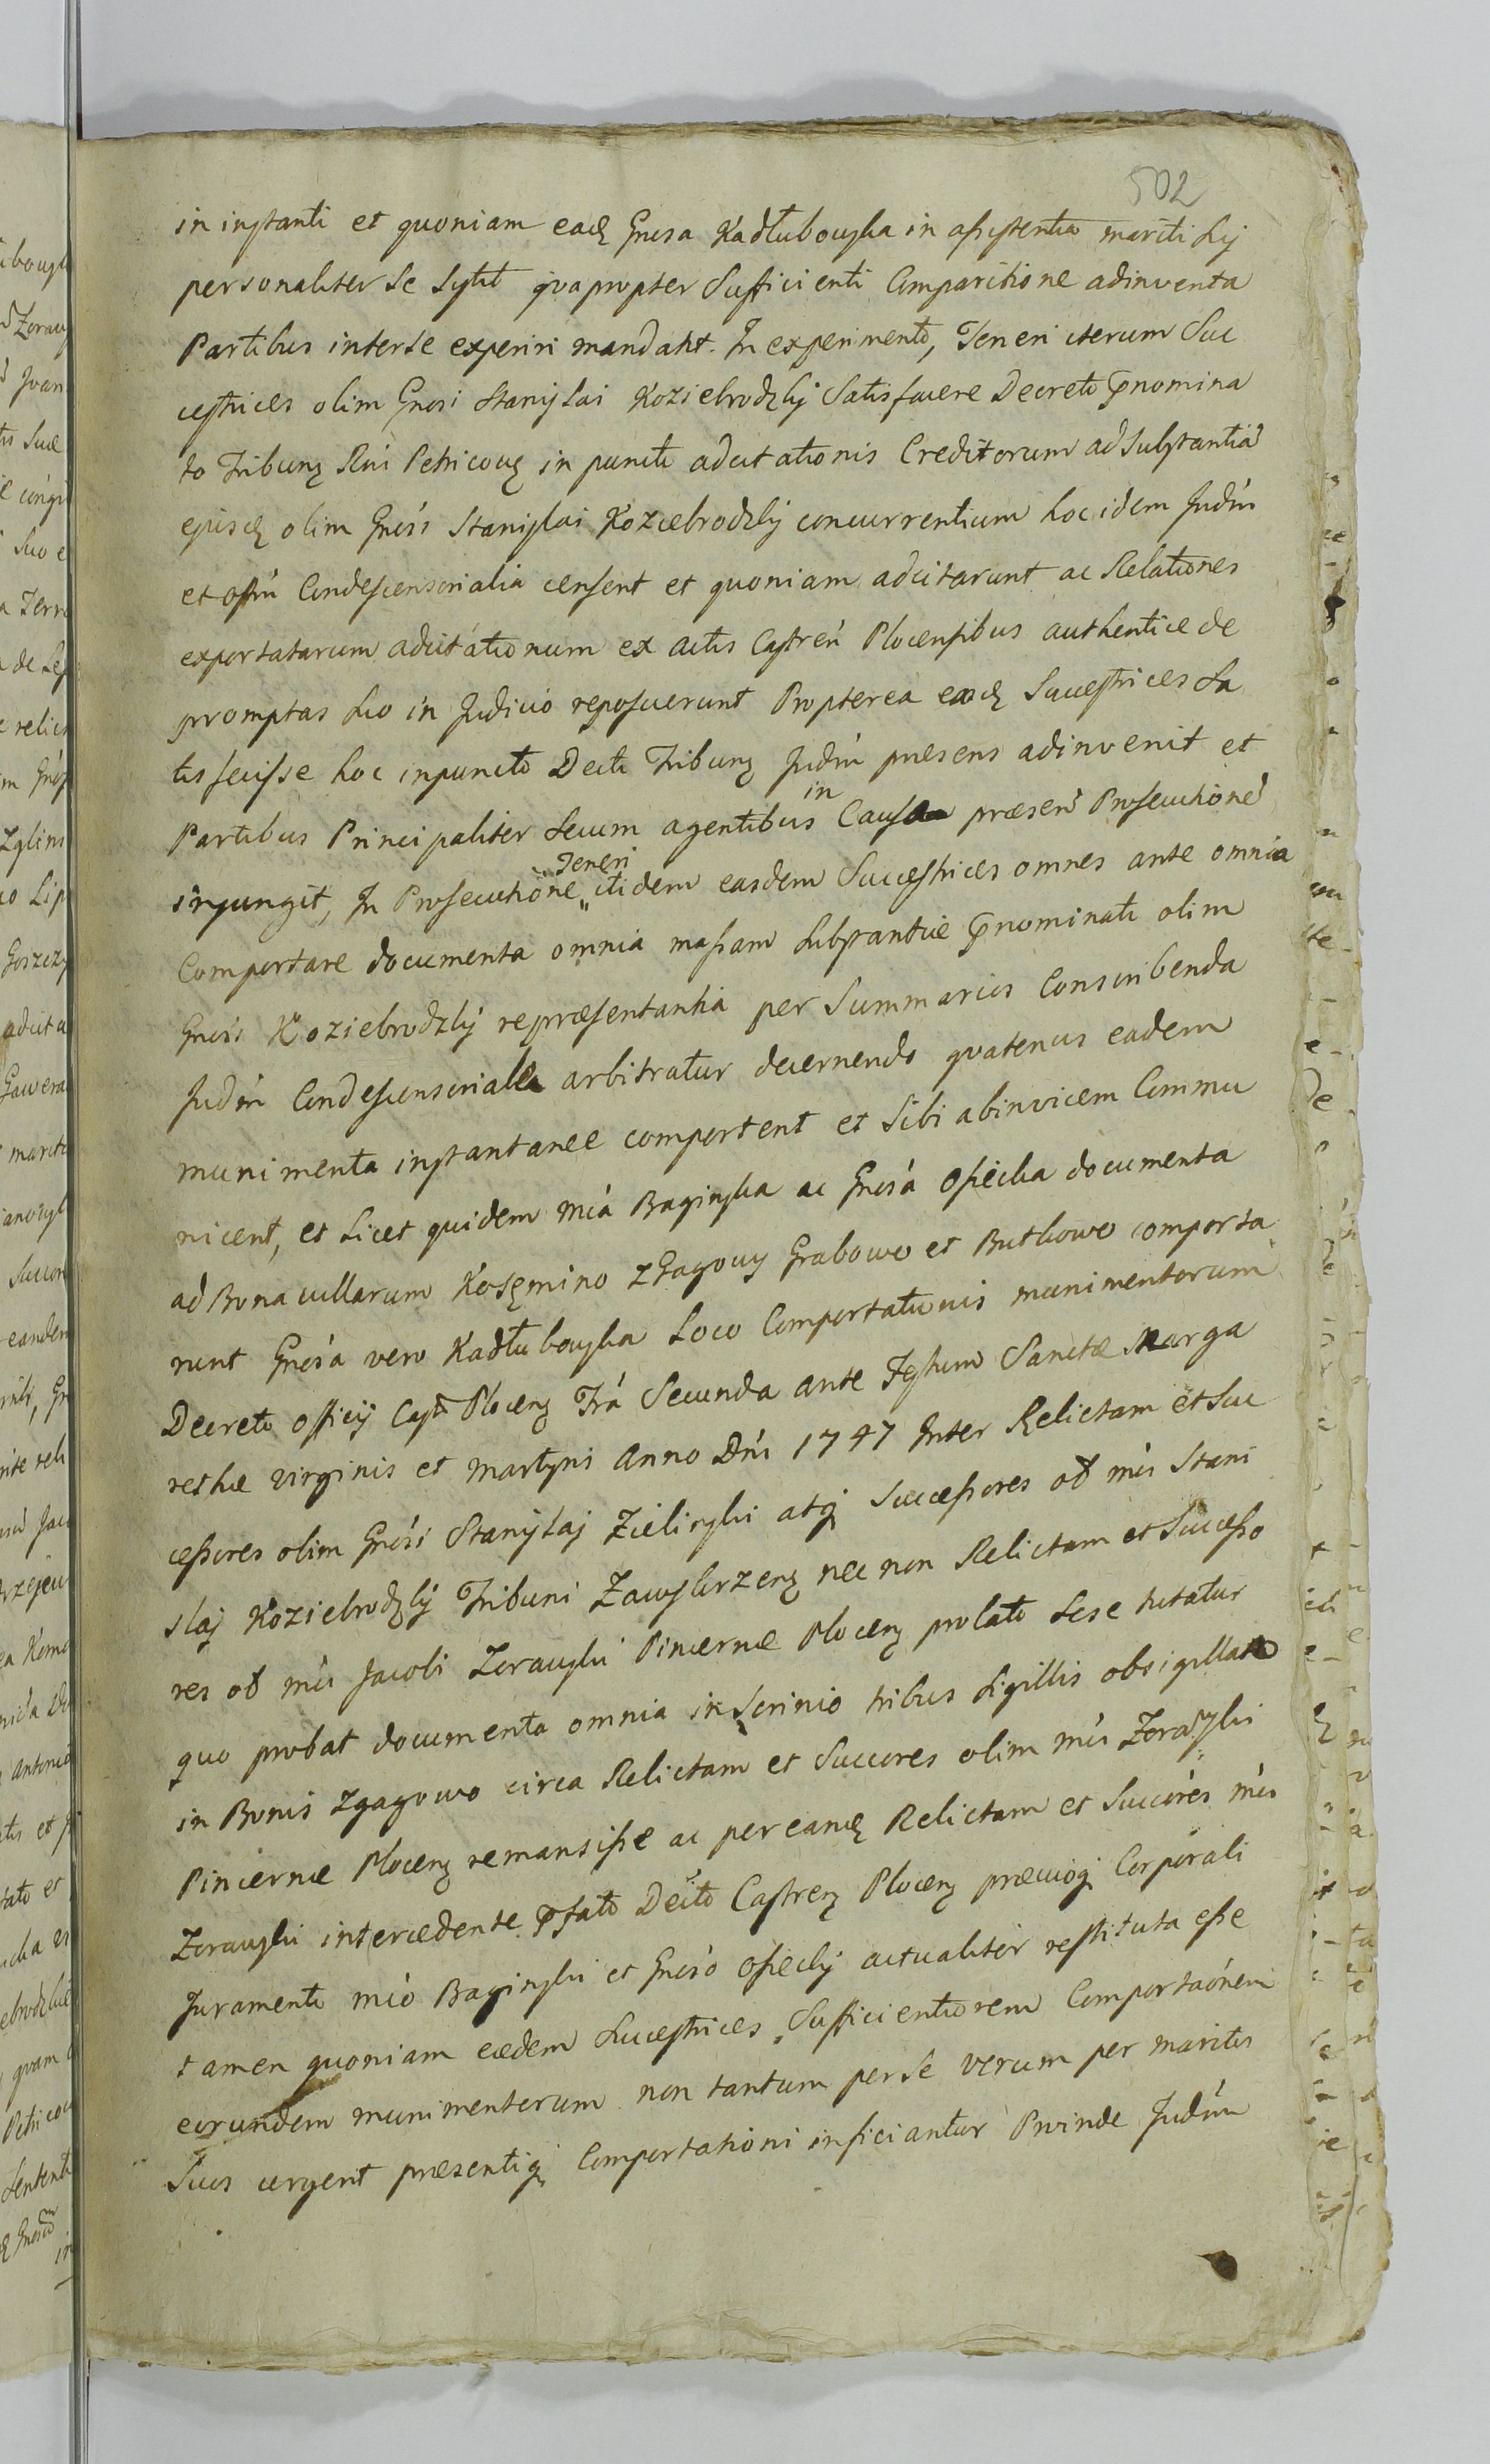 502
in instanti et quoniam eadę Gnosa Kadłubowska in assistentia mariti sui
personaliter se stytit qvapropter Sufficienti Comparitione adinventa
Partibus inter se experiri mandant. In experimento, Teneri iterum Suc
cestrices olim Gnosi Stanislai Koziebrodzky Satisfacere Decreto Pnomina
to Tribunę Rni Petricovę in puncto adcitationis Creditorum ad Substantiã
ejusdę olim Gnosi Stanislai Koziebrodzky concurrentium hoc idem Judm
et offm Condescensorialia censent et quoniam adcitarunt ac Relationes
exportatarum adcitationum ex actis Castreñ Plocensibus authentice de
promptas suo in Judicio reposuerunt Propterea eadę Sucestrices Sa
tisfecisse hoc inpuncto Decti Tribunę Judm præsens adinvenit et
Partibus Principaliter secum agentibus in Causa præsenẽ Prosecutionẽ
injungit, In Prosecutione Teneri itidem easdem Succestrices omnes ante omnia
Comportare documenta omnia massam substantiæ Pnominati olim
Gnosi Koziebrodzky repræsentantia per Summarios Conscribenda
Judm Condescensoriale arbitratur decernendo qvatenus eadem
munimenta instantanee comportent et Sibi abinvicem Commu
nicent, et Licet quidem mca Baginska ac Gnosa Osiecka documenta
ad Bona villarum Kosęmino Zgagowy Grabowo et Buthowo comporta
runt Gnosa vero Kadłubowska Loco Comportationis munimentorum
Decreto officij Castr Plocenę Fra Secunda ante Festum Sanctæ Marga
rethæ virginis et martyris Anno Dni 1747 Inter Relictam et Suc
cessores olim Gnosi Stanislaj Zielinski atq Successores oł mci Stani
slaj Koziebrodzky Tribuni Zawskrzenę nec non Relictam et Successo
res oł mci Jacobi Zorawski Pincernæ Plocenę prolato sese tutatur
quo probat documenta omnia in Scrinio tribus Sigillis obsigillato
in Bonis Zgagowo circa Relictam et Succores olim mci Zorawski
Pincernæ Plocenę remansisse ac per eandę Relictam et Succóres mci
Zorawski intercedente Pfato Decto Castrenę Plocenę præviogi Corporali
Juramento mco Baginski et Gnoso Osiecky actualiter restituta esse
tamen quoniam eædem Sucestrices Sufficientiorem Comportaonem
eorundem munimentorum non tantum per se verum per maritos
Suos urgent præsentiq Comportationi inficiantur Proinde Judm